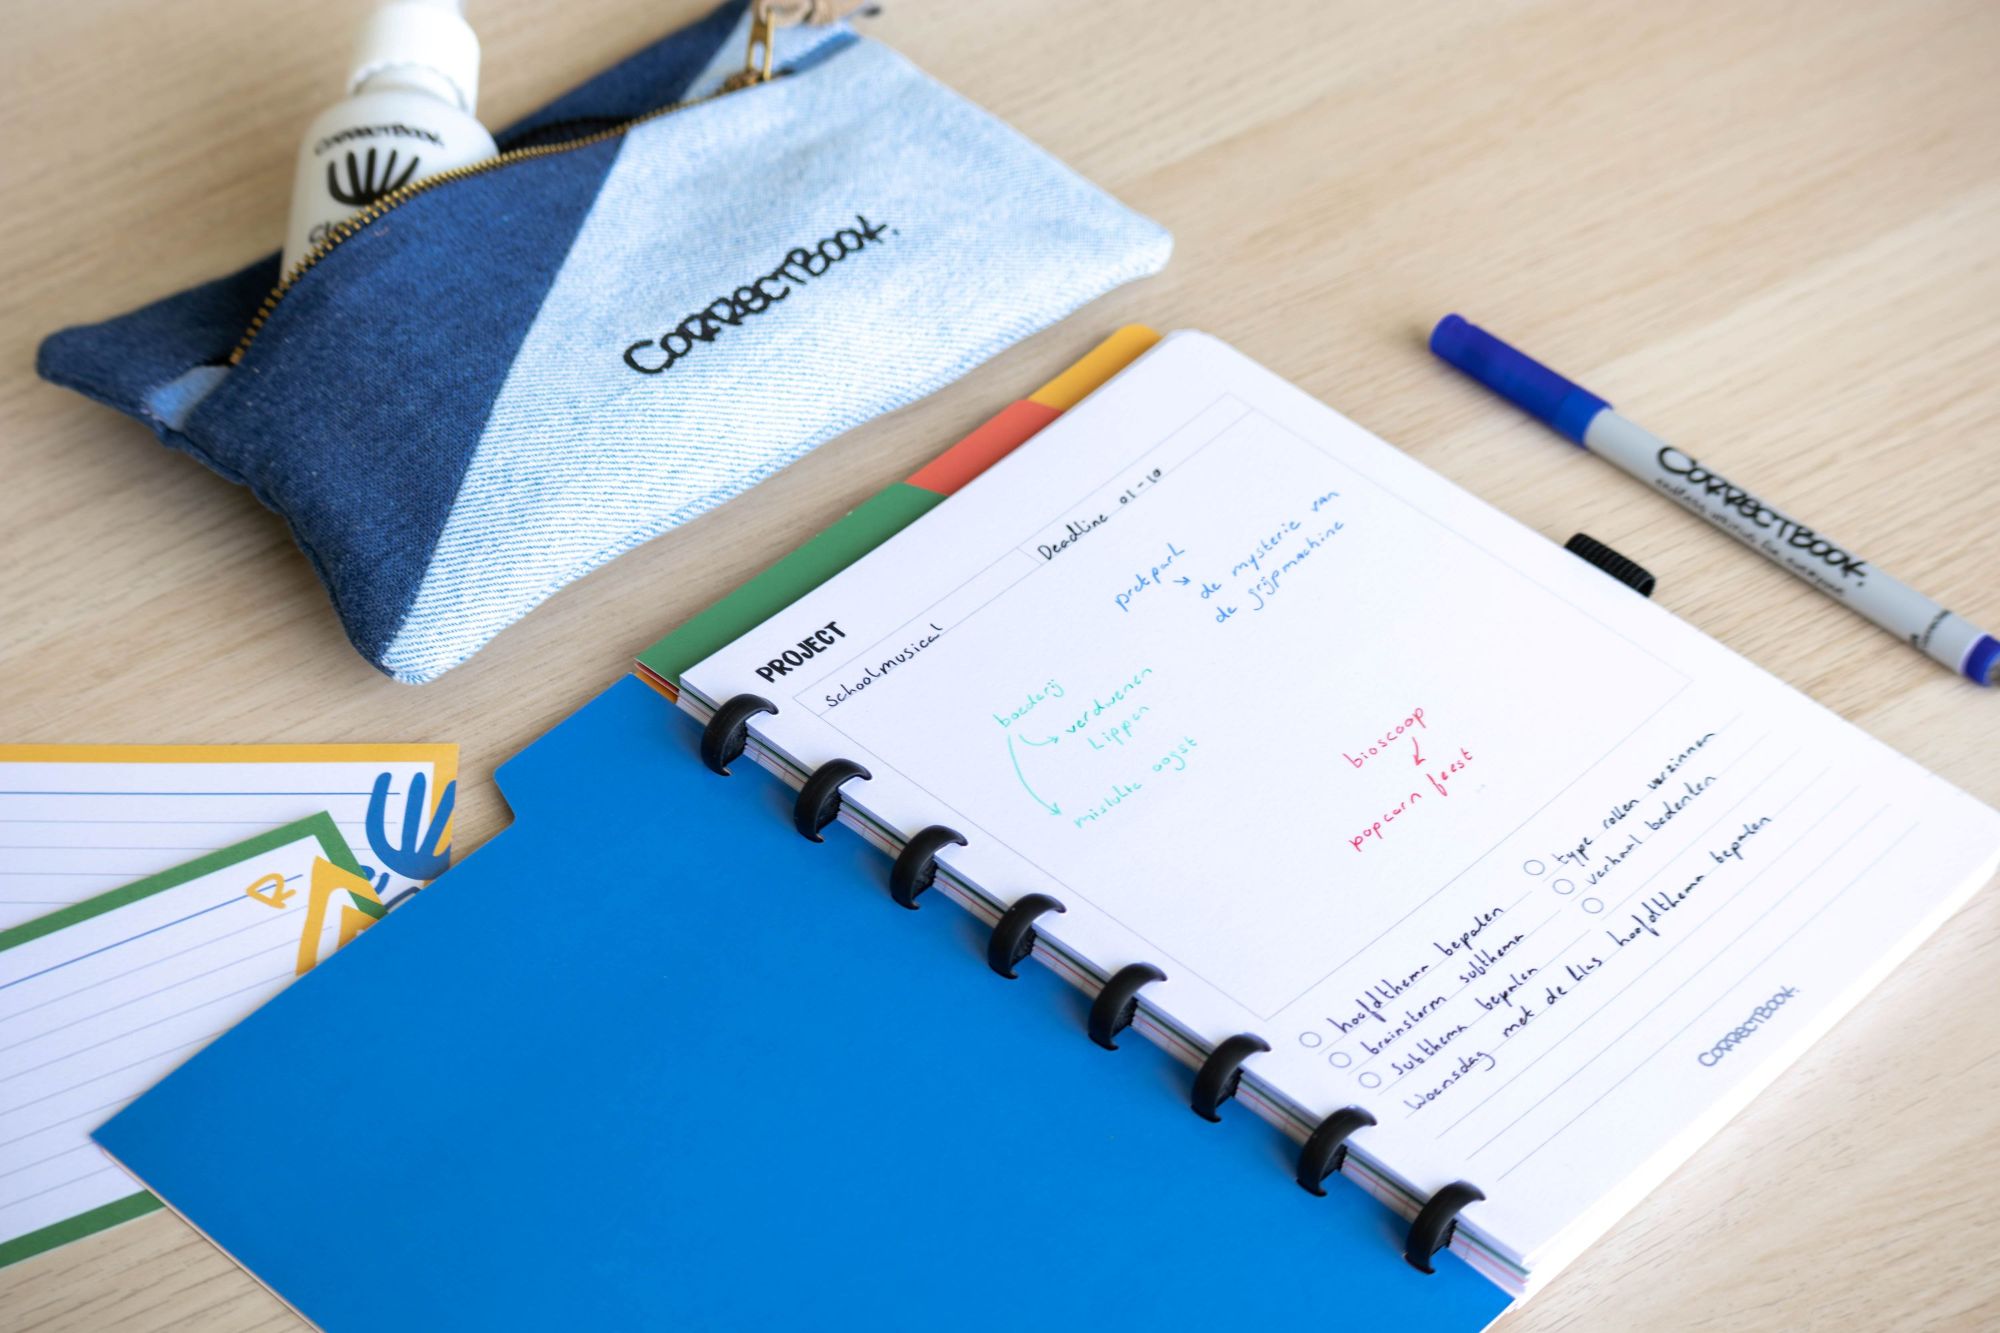 CORRECTBOOK.
CORRECTBOOK.
CORRECTBOOK.
PROJECT
Schoolmusical
Deadline 01-10
pretpark
de mysterie van
de grijpmachine
boerderij
verdwenen
kippen
mislukte oogst
bioscoop
popcorn feest
hoofdthema bepalen
brainstorm subthema
subthema bepalen
type rollen verzinnen
verhaal bedenken
Woensdag met de klas hoofdthema bepalen
CORRECTBOOK.